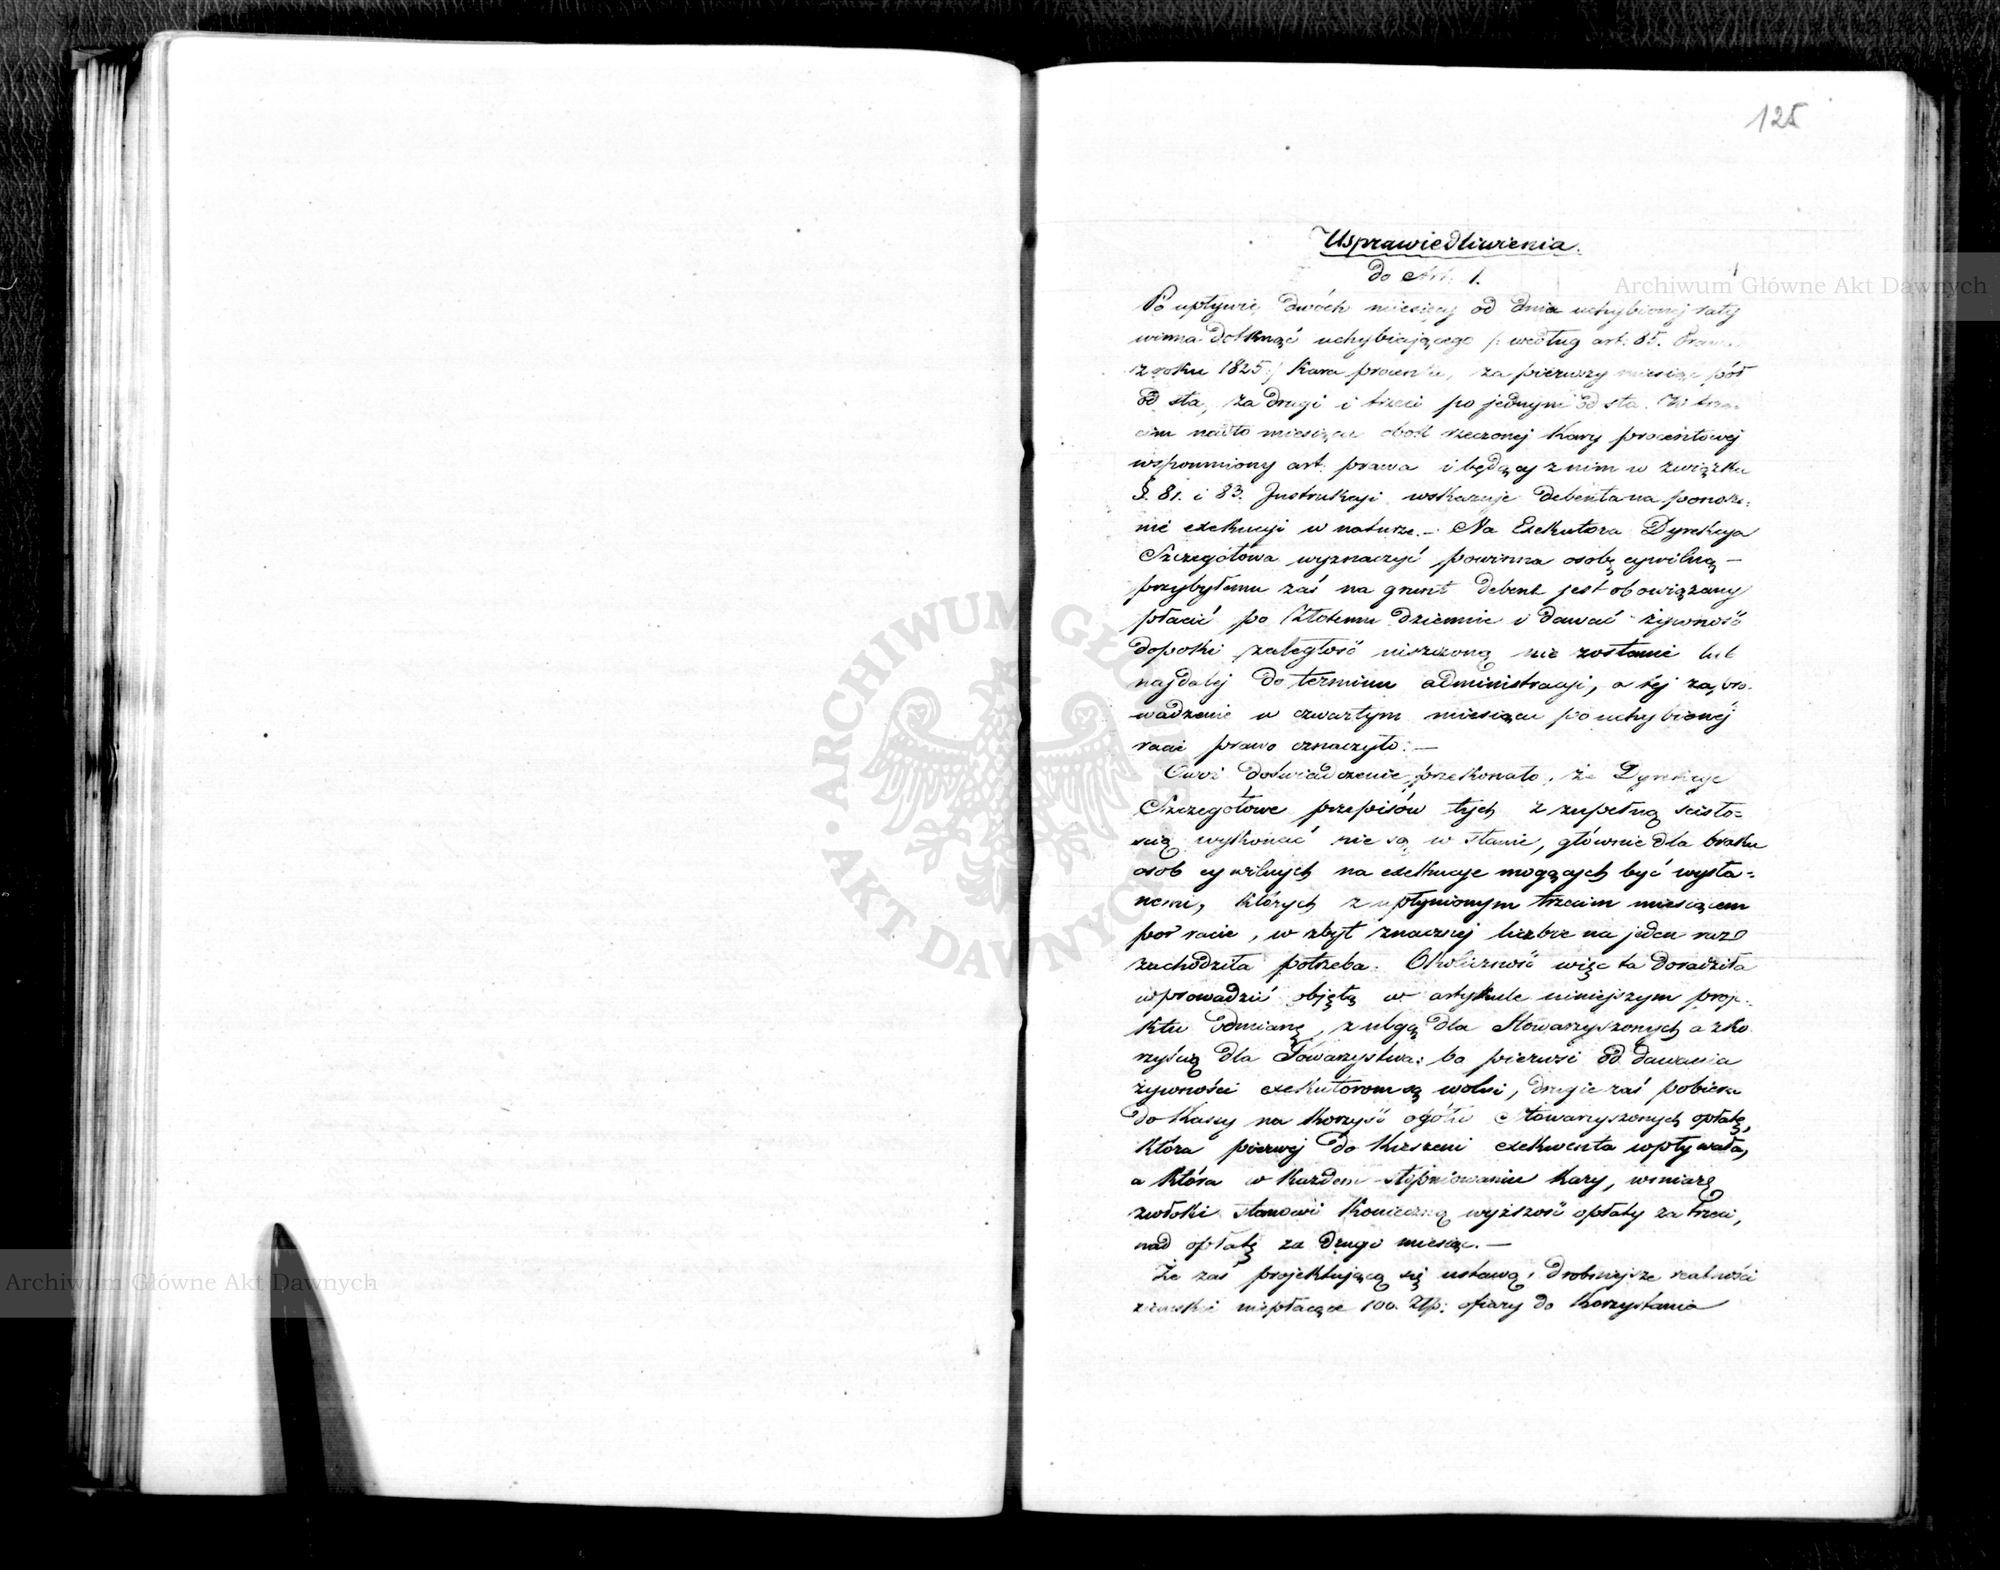 125
Usprawiedliwienia.
do Art. 1.
Po upływie dwóch miesięcy od dnia uchybionej raty
winna dotknąć uchybiającego /: według art: 85. Prawa
z roku 1825 :/ kara procentu, za pierwszy miesiąc pół
od sta, za drugi i trzeci po jednym od sta. W trze-
cim nadto miesiącu obok rzeczonej kary procentowej
wspomniony art: prawa i będący z nim w związku
§. 81. i 83. Instrukcyi wskazuje debenta na ponosze-
nie exekucyi w naturze. – Na Exekutora Dyrekcya
Szczegółowa wyznaczyć powinna osobę cywilną –
przybyłemu zaś na grunt debent jest obowiązany
płacić po Złotemu dziennie i dawać żywność
dopoki zaległość uiszczoną nie zostanie lub
najdalej do terminu administracyi, a tej zapro-
wadzenie w czwartym miesiącu po uchybionej
racie prawo oznaczyło. –
Owoż doświadczenie przekonało, że Dyrekcye
Szczegółowe przepisów tych z zupełną scisło-
scią wykonać nie są w stanie, głównie dla braku
osob cywilnych na exekucye mogących być wysła-
nemi, których z upłynionym trzecim miesiącem
po racie, w zbyt znacznej liczbie na jeden raz
zachodziła potrzeba. Okoliczność więc ta doradziła
wprowadzić objętą w artykule niniejszym proje-
ktu odmianę, z ulgą dla Stowarzyszonych a z ko-
rzyścią dla Towarzystwa: bo pierwsi od dawania
żywności exekutorom są wolni, drugie zaś pobiera
do Kassy na korzyść ogółu Stowarzyszonych opłatę,
która pierwej do kieszeni exekwenta wpływała,
a która w każdem stopniowaniu kary, w miarę
zwłoki stanowi konieczną wyższość opłaty za trzeci,
nad opłatę za drugi miesiąc. –
Że zaś projektującą się ustawą, drobniejsze realności
ziemskie niepłacące 100. Złp: ofiary do korzystania
Archiwum Główne Akt Dawnych
Archiwum Główne Akt Dawnych
ARCHIWUM GŁÓWNE AKT DAWNYCH